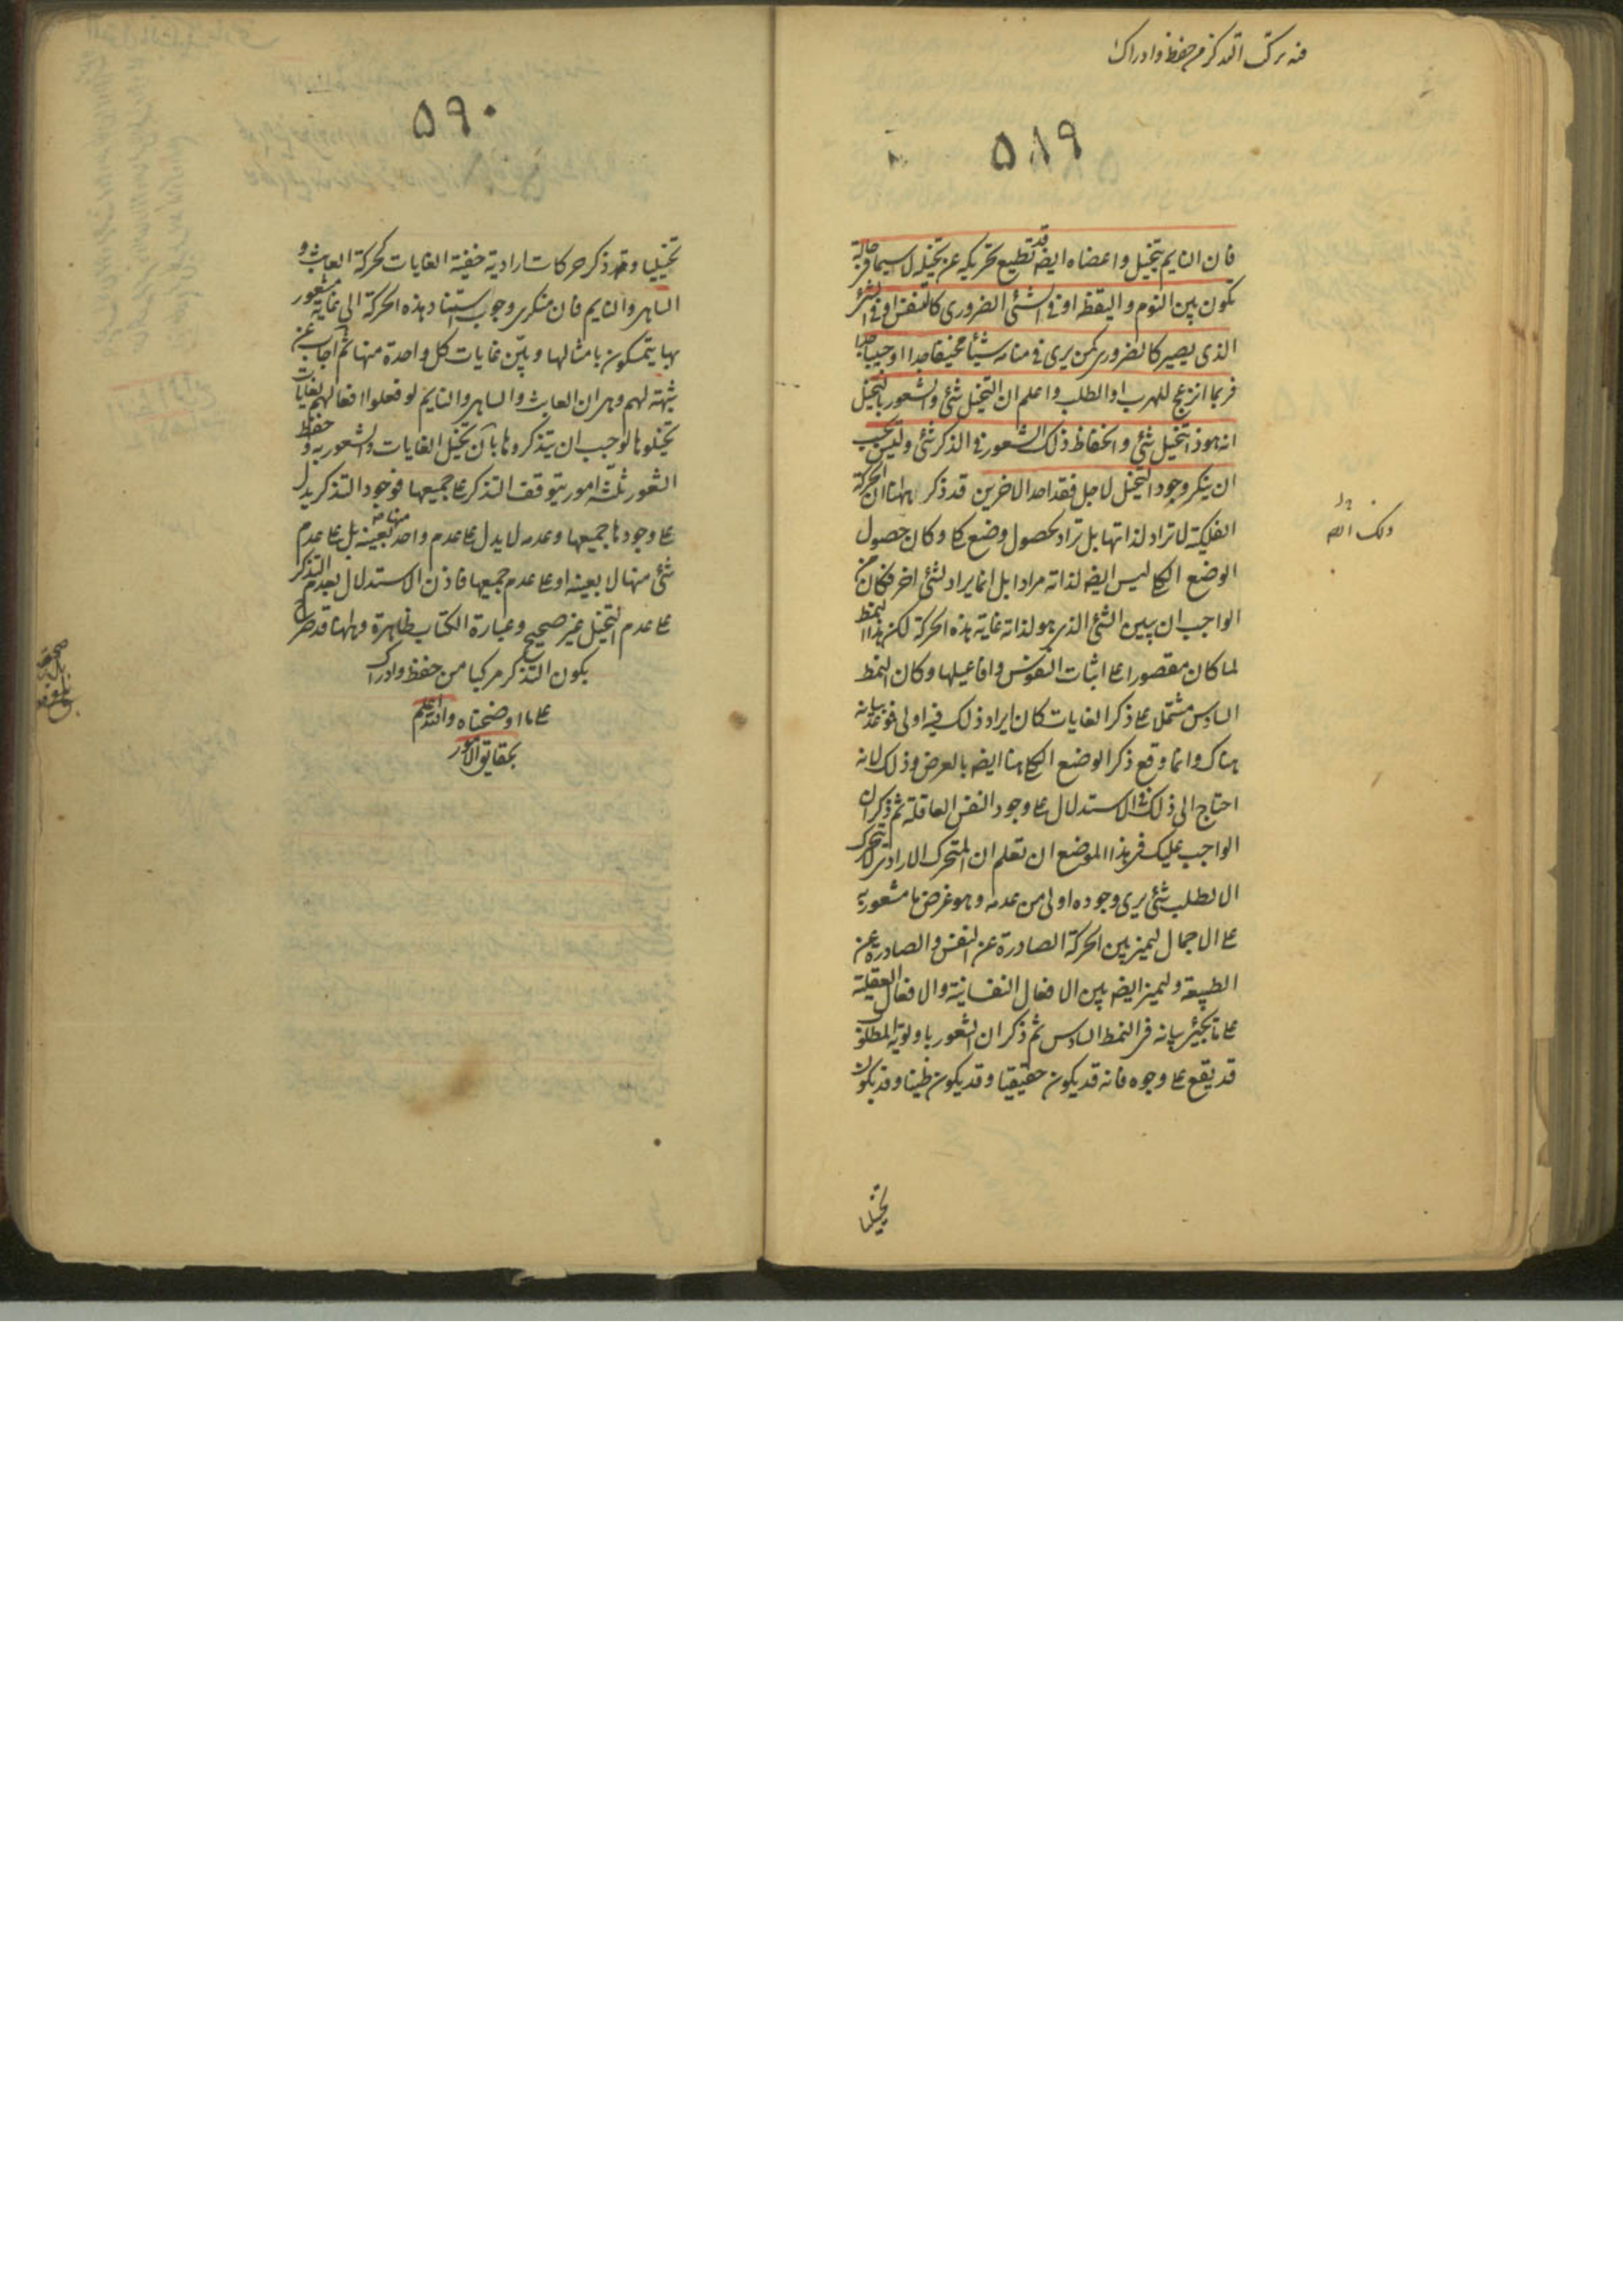 فنه تركب التذكر من حفظ وادراك
۵۸۹
فان النايم يتخيل واعضاه ايضه قد تطيع تحريكه عن تخيله لا سيما في حالة
تكون بين النوم واليقظة او في الشئ الضرورى كالتنفس او فى الشئ
الذى يصير كالضرورى كمن يرى فى منامه شيئا مخيفا جدا او حبيبا جدا
فربما انزعج للهرب او الطلب واعلم ان التخيل شئ والشعور بالتخيل
انه هوذا تخيل شئ وانحفاظ ذلك الشعور فى الذكر شئ وليس يجب
ان ينكر وجود التخيل لاجل فقد احد الاخرين قد ذكر ههنا ان الحركة
الفلكية لا تراد لذاتها بل تراد لحصول وضع كلى وكان حصول
الوضع الكلى ليس ايضه لذاته مرادا بل انما يراد لشئ اخر فكان من
الواجب ان يبين الشئ الذى هو لذاته غاية هذه الحركة لكن هذا النمط
لما كان مقصورا على اثبات النفوس وافاعيلها وكان النمط
السادس مشتملا على ذكر الغايات كان ايراد ذلك فيه اولى فوعد بيانه
هناك وانما وقع ذكر الوضع الكلى هنا ايضه بالعرض وذلك لانه
احتاج الى ذلك فى الاستدلال على وجود النفس العاقلة ثم ذكر ان
الواجب عليك فى هذا الموضع ان تعلم ان المتحرك الارادى لا يتحرك
الا لطلب شئ يرى وجوده اولى من عدمه وهو غرض ما مشعور به
على الاجمال ليميز بين الحركة الصادرة عن النفس والصادرة عن
الطبيعة وليميز ايضه بين الافعال النفسانية والافعال العقلية
على ما يجئ بيانه فى النمط السادس ثم ذكر ان الشعور باولوية المطلوب
قد يقع على وجوه فانه قد يكون حقيقيا وقد يكون ظنيا وقد يكون
تخيليا
۵۹۰
تخييليا وقد ذكر حركات ارادية خفية الغايات كحركة العابث و
الساهر والنايم فان منكرى وجوب استناد هذه الحركة الى غاية مشعور
بها يتمسكون بامثالها وبيّن غايات كل واحدة منها ثم اجاب عن
شبهة لهم وهى ان العابث والساهر والنايم لو فعلوا افعالهم لغايات
تخيلوها لوجب ان يتذكروها بان تخيل الغايات والشعور به وحفظ
الشعور ثلثة امور يتوقف التذكر على جميعها فوجود التذكر يدل
على وجودها جميعها وعدمه لا يدل على عدم واحد منها بعينه بل على عدم
شئ منها لا بعينه او على عدم جميعها فاذن الاستدلال بعدم التذكر
على عدم التخيل غير صحيح وعبارة الكتاب ظاهرة وههنا قد صرح
بكون التذكر مركبا من حفظ وادراك
على ما اوضحناه والله اعلم
بحقايق الامور